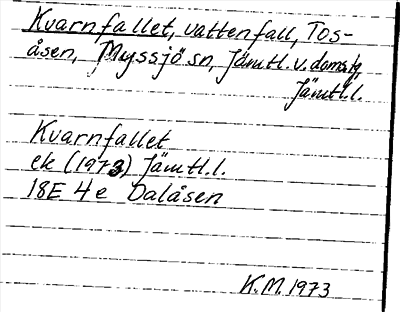 Kvarnfallet, vattenfall, Tos-
åsen, Myssjö sn, Jämtl. v. doms.tg,
Jämtl.l.
Kvarnfallet
ek (1973) Jämtl.l.
18E 4e Dalåsen
K.M. 1973